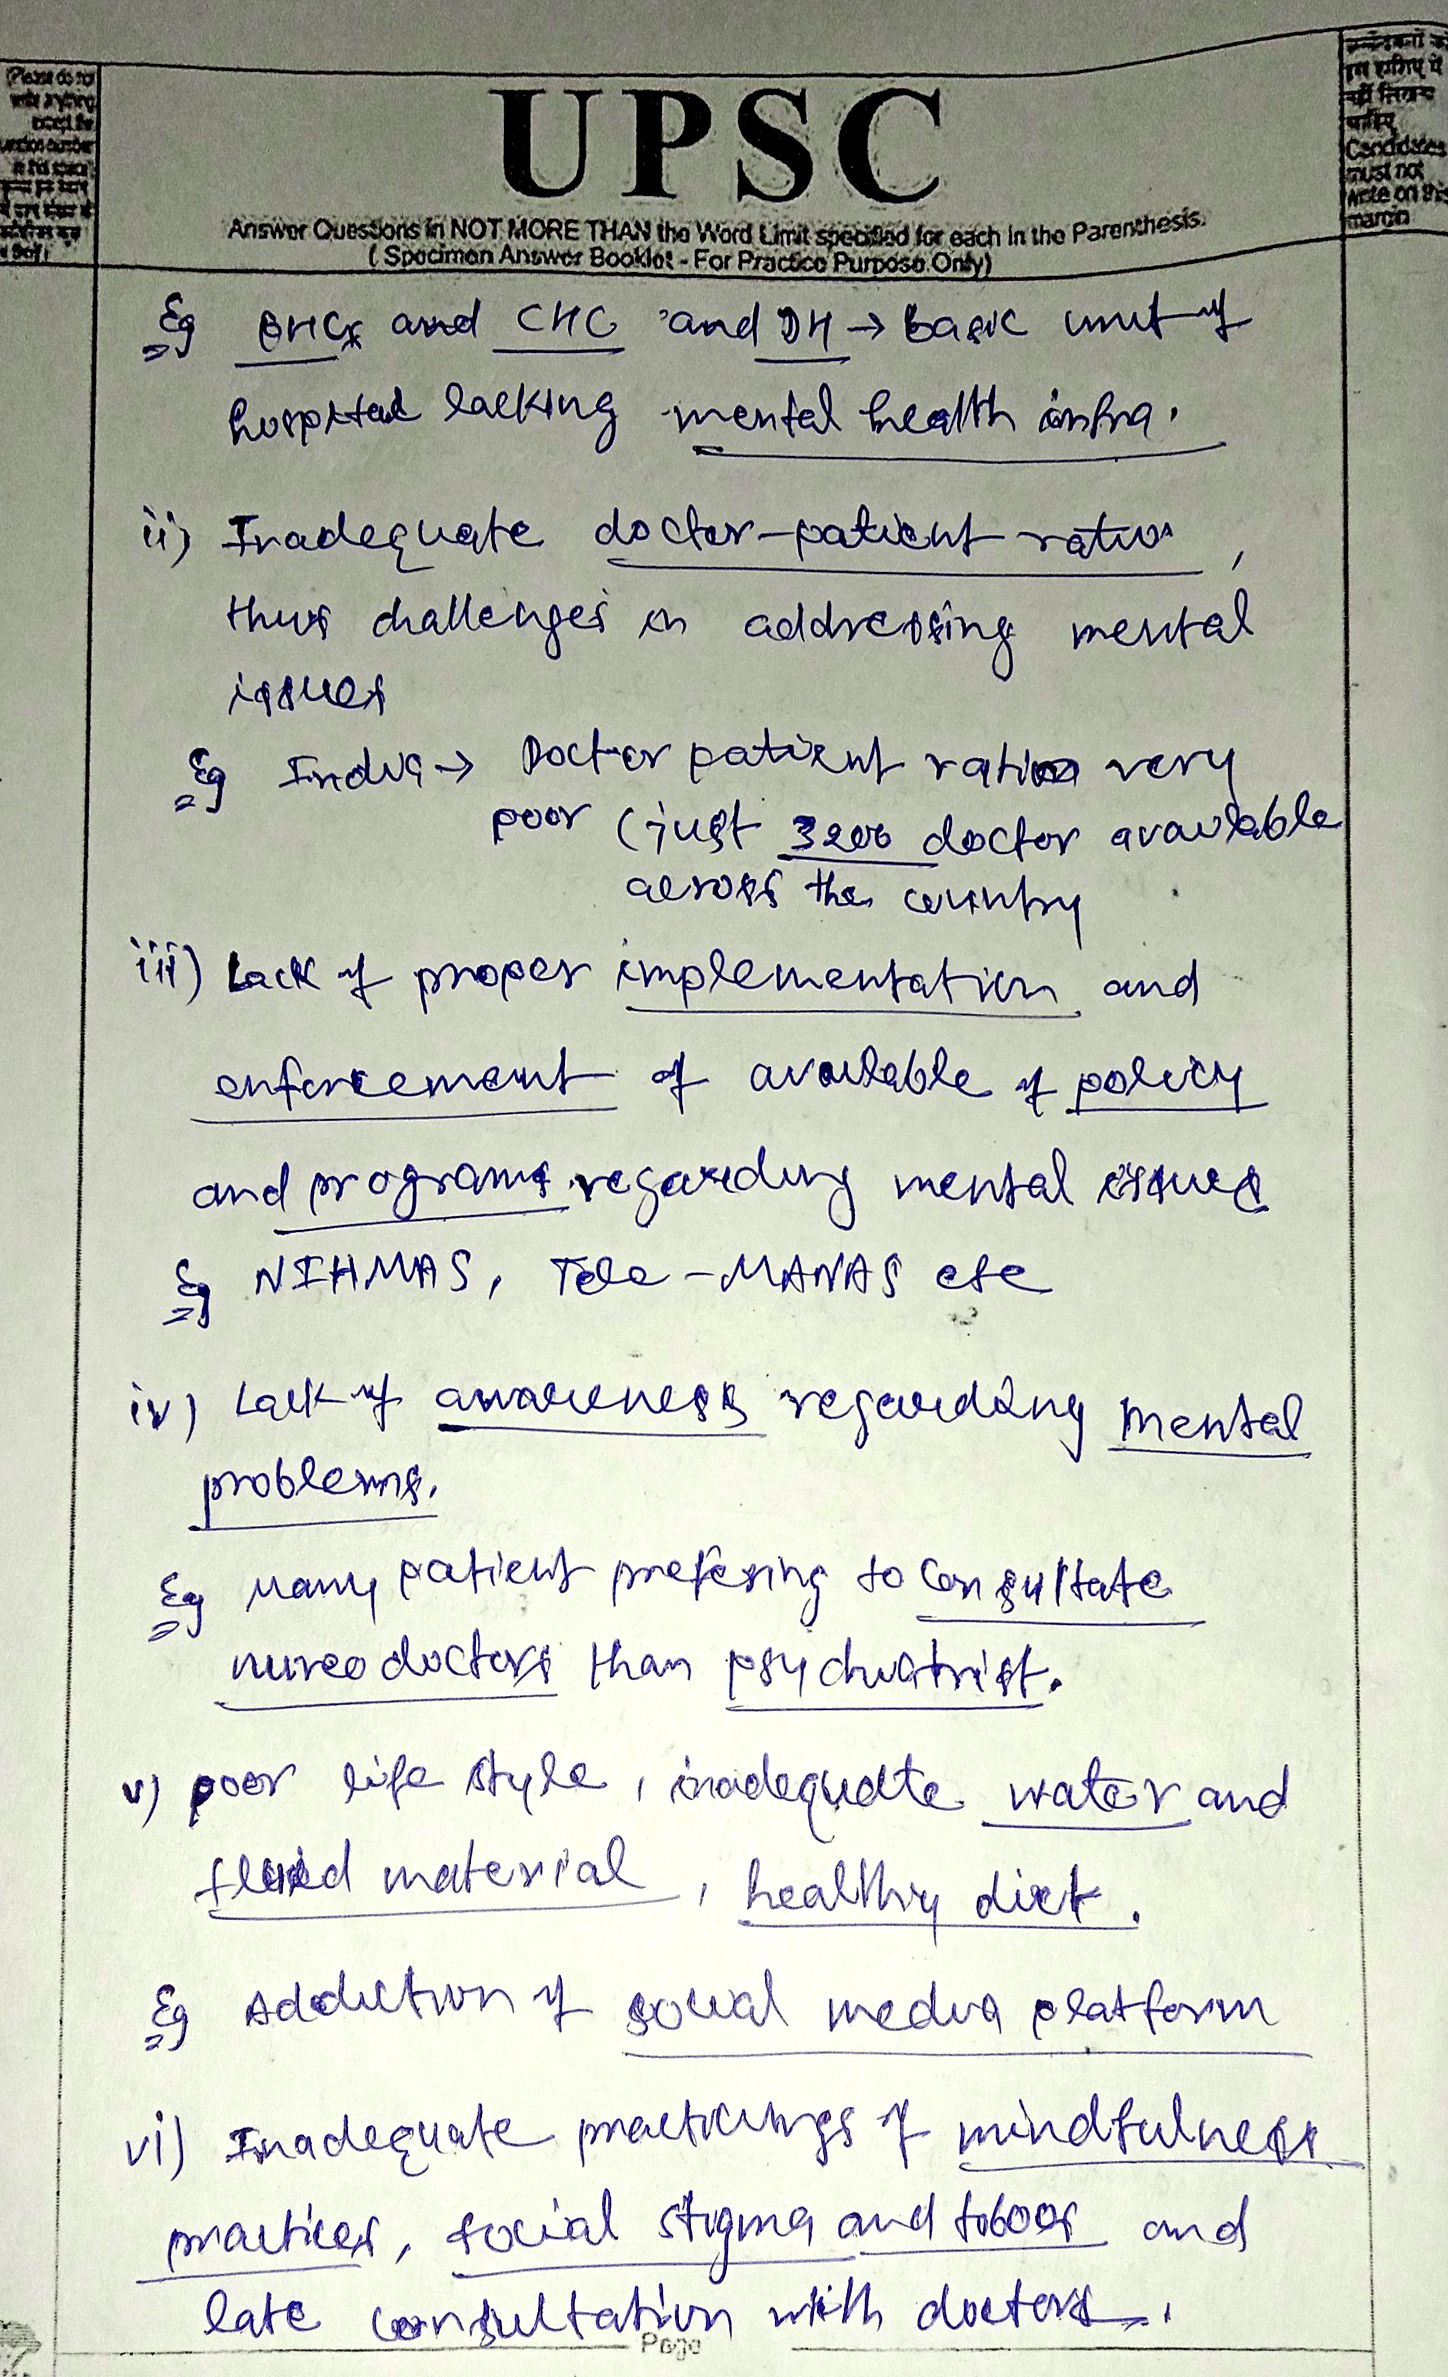 (Please do not
write anything
except the
question number
in this space)
UPSC
Answer Questions in NOT MORE THAN the Word Limit specified for each in the Parenthesis.
( Specimen Answer Booklet - For Practice Purpose Only)
इस हाशिए में
नहीं लिखना
चाहिए
Candidates
must not
write on this
margin
Eg PHCs and CHC and DH → Basic unit of
hospital lacking mental health infra.
ii) Inadequate doctor-patient ratio,
thus challenges in addressing mental
issues
Eg India → Doctor patient ratio very
poor (just 3200 doctor available
across the country
iii) Lack of proper implementation and
enforcement of available of policy
and programs regarding mental issues
Eg NIHMAS, Tele-MANAS etc
iv) Lack of awareness regarding mental
problems.
Eg Many patient prefering to consultate
nureo doctors than psychiatrist.
v) poor life style, inadequate water and
fluid material, healthy diet.
Eg Addiction of social media platform
vi) Inadequate practicings of mindfulness
practices, social stigma and taboos and
late consultation with doctors.
Page